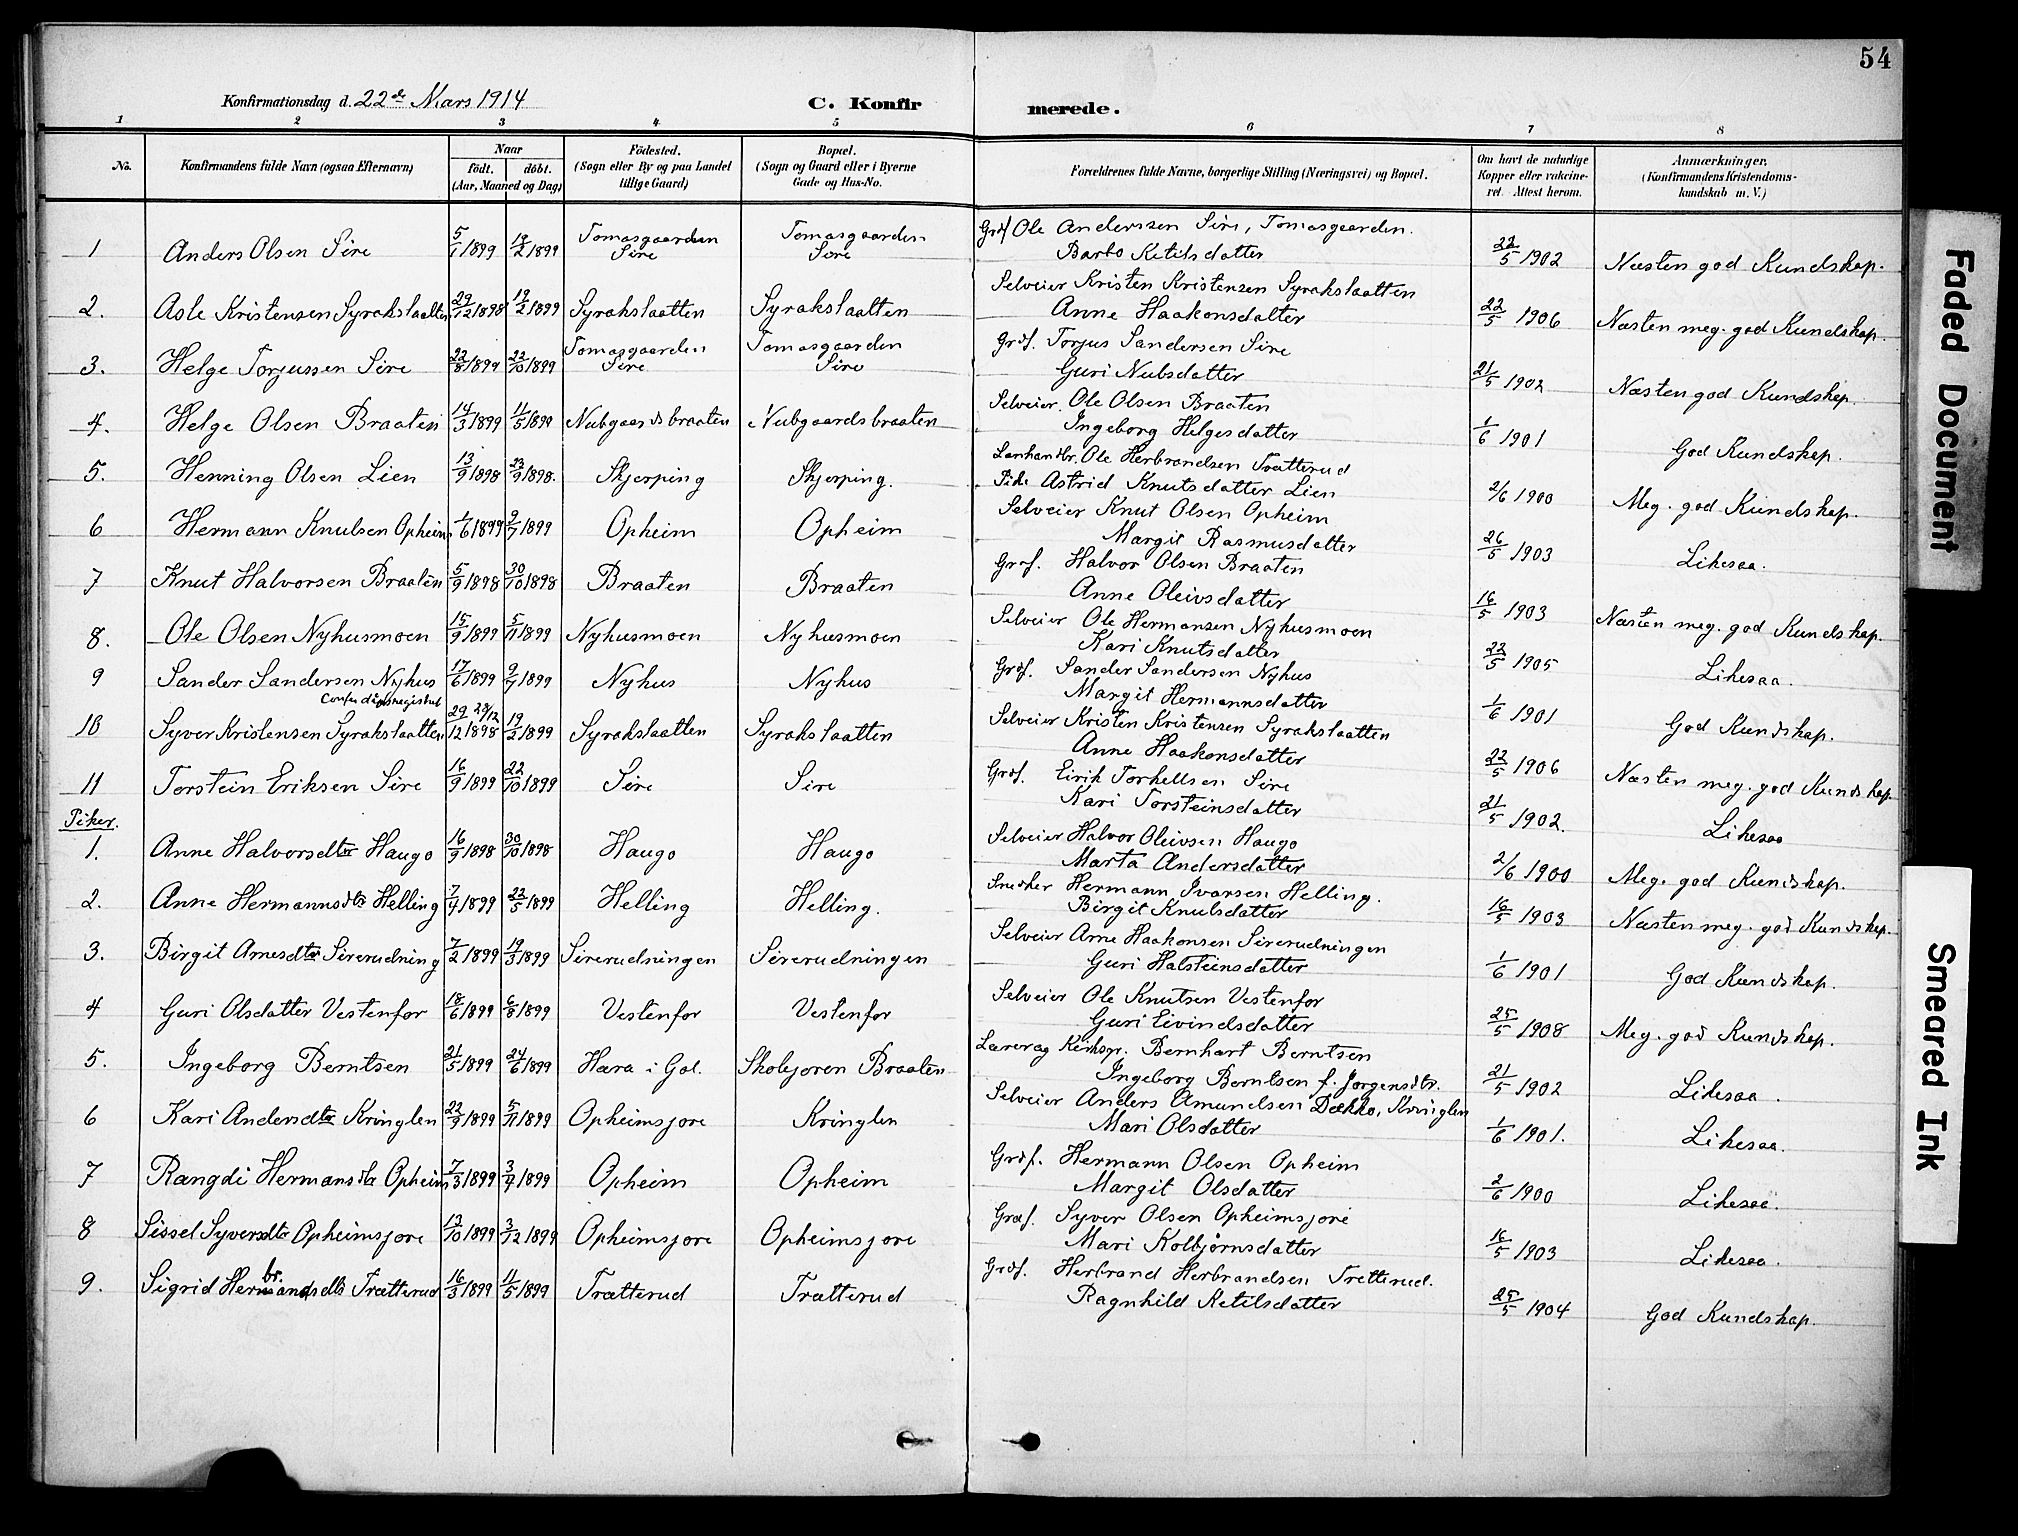 54
Konfirmationsdag d. 22de Mars 1914
C. Konfirmerede.
1 2 3 4 5 6 7 8
No.
Konfirmandens fulde Navn (ogsaa Efternavn)
Naar
födt. döbt.
(Aar, Maaned og Dag)
Födested.
(Sogn eller By og paa Landet
tillige Gaard)
Bopæl.
(Sogn og Gaard eller i Byerne
Gade og Hus-No.
Forældrenes fulde Navne, borgerlige Stilling (Næringsvei) og Bopæl.
Om havt de naturlige
Kopper eller vakcine-
ret. Attest herom.
Anmærkninger.
(Konfirmandens Kristendoms-
kundskab m. V.)
1 Anders Olsen Sire 5/1 1899 19/2 1899 Tomasgaarden Sire Tomasgaarden Sire Grdf Ole Anderssen Sire, Tomasgaarden.
Barbo Ketilsdatter 22/5 1902 Næsten god Kundskap.
2. Asle Kristensen Syrakslaatten 29/12 1898 19/2 1899 Syrakslaatten Syrakslaatten Selveier Kristen Kristensen Syrakslaatten
Anne Haakonsdatter 22/5 1906 Næsten meg. god Kundskap.
3. Helge Torjussen Sire 22/8 1899 22/10 1899 Tomasgaarden Sire Tomasgaarden Sire Grdf. Torjus Sandersen Sire
Guri Nubsdatter 21/5 1902 Næsten god Kundskap.
4. Helge Olsen Braaten 14/3 1899 11/5 1899 Nubgaardsbraaten Nubgaardsbraaten Selveier. Ole Olsen Braaten
Ingeborg Helgesdatter 1/6 1901 God Kundskap.
5. Henning Olsen Lien 13/9 1898 23/9 1898. Skjerping Skjerping. Lanhandlr. Ole Herbrandsen Trætterud
Pike Astrid Knutsdatter Lien 2/6 1900 Meg. god Kundskap.
6 Hermann Knutsen Opheim 1/6 1899 9/7 1899 Opheim Opheim Selveier Knut Olsen Opheim
Margit Rasmusdatter 26/5 1903 Likesaa.
7 Knut Halvorsen Braaten 5/9 1898 30/10 1898 Braaten Braaten Grdf. Halvor Olsen Braaten
Anne Oleivsdatter 16/5 1903 Næsten meg. god Kundskap.
8. Ole Olsen Nyhusmoen 15/9 1899 5/11 1899 Nyhusmoen Nyhusmoen Selveier Ole Hermansen Nyhusmoen
Kari Knutsdatter 22/5 1905 Likesaa.
9 Sander Sandersen Nyhus 17/6 1899 9/7 1899 Nyhus Nyhus Grdf. Sander Sandersen Nyhus
Margit Hermannsdatter 1/6 1901 God Kundskap.
10 Syver Kristensen Syrakslaatten 29/12 1898 28/12 19/2 1899 Syrakslaatten Syrakslaatten Selveier Kristen Kristensen Syrakslaatten
Anne Haakonsdatter 22/5 1906 Næsten meg. god Kundskap
11 Torstein Eriksen Sire 16/9 1899 22/10 1899 Sire Sire Grdf. Eirik Torkellsen Sire
Kari Torsteinsdatter 21/5 1902. Likesaa
Piker.
1. Anne Halvorsdtr Haugo 16/9 1898 30/10 1898 Haugo Haugo Selveier Halvor Oleivsen Haugo
Marta Andersdatter 2/6 1900 Meg. god Kundskap.
2. Anne Hermannsdtr Helling 7/4 1899 22/5 1899 Helling Helling. Snedker Hermann Ivarsen Helling.
Birgit Knutsdatter 16/5 1903 Næsten meg. god Kundskap.
3. Birgit Arnesdtr Sirerudning 7/2 1899 19/3 1899 Sirerudningen Sirerudningen Selveier Arne Haakonsen Sirerudningen
Guri Halsteinsdatter 1/6 1901 God Kundskap.
4 Guri Olsdatter Vestenfor 18/6 1899 6/8 1899 Vestenfor Vestenfor Selveier Ole Knutsen Vestenfor
Guri Eivindsdatter 25/5 1908 Meg. god Kundskap.
5. Ingeborg Berntsen 21/5 1899 24/6 1899 Hæra i Gol. Skolejoren Braaten Lærer og Kirkesgr. Bernhart Berntsen
Ingeborg Berntsen f. Jørgensdtr. 21/5 1902 Likesaa.
6 Kari Andersdtr Kringlen 22/9 1899 5/11 1899 Opheimsjore Kringlen Selveier Anders Amundsen Dækko, Kringlen
Mari Olsdatter 1/6 1901. Likesaa.
7 Rangdi Hermansdtr Opheim 7/3 1899 3/4 1899 Opheim Opheim Grdf. Hermann Olsen Opheim
Margit Olsdatter 2/6 1900 Likesaa.
8 Sissel Syversdtr Opheimsjore 13/10 1899 3/12 1899 Opheimsjore Opheimsjore Grdf. Syver Olsen Opheimsjore
Mari Kolbjørnsdatter 16/5 1903 Likesaa.
9. Sigrid Herbrandsdtr Trætterud 16/3 1899 11/5 1899 Trætterud Trætterud Grdf. Herbrand Herbrandsen Trætterud.
Ragnhild Ketilsdatter 25/5 1904 God Kundskap.
Faded Document
Smeared Ink